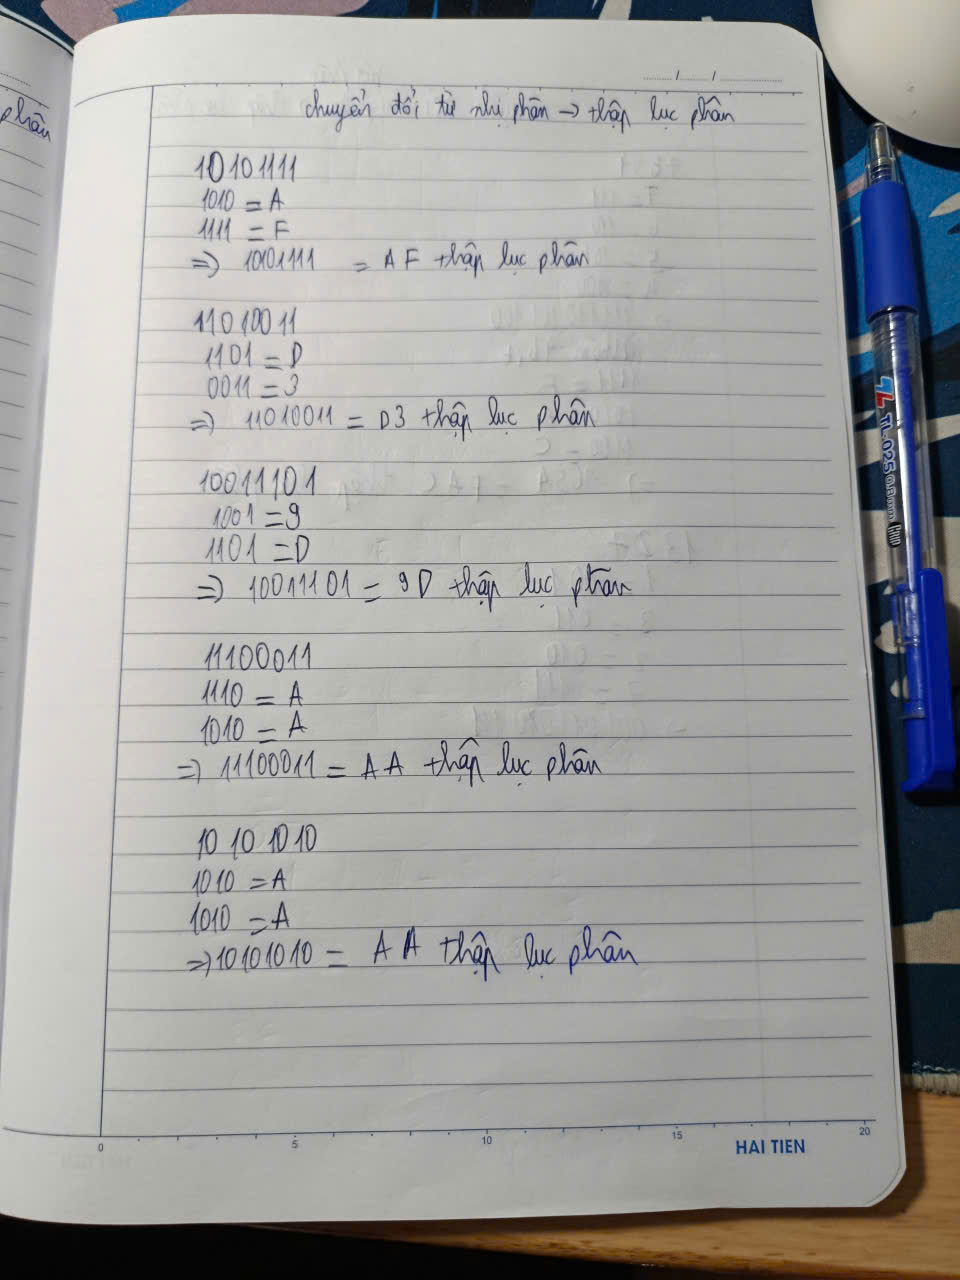 phân
chuyển đổi từ nhị phân -> thập lục phân
10101111
1010 = A
1111 = F
=> 10101111 = AF thập lục phân
11010011
1101 = D
0011 = 3
=> 11010011 = D3 thập lục phân
10011101
1001 = 9
1101 = D
=> 10011101 = 9D thập lục phân
11100011
1110 = A
1010 = A
=> 11100011 = AA thập lục phân
10101010
1010 = A
1010 = A
=> 10101010 = AA thập lục phân
0 5 10 15 20
HAI TIEN
TL-025